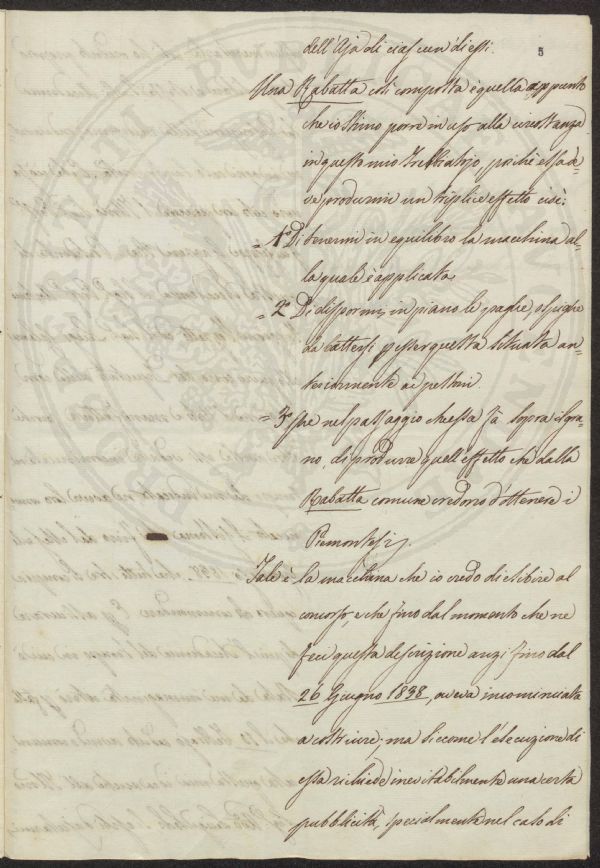 5
dell'Aja di ciascun' di essi.
Una Rabatta così composta è quella appunto
che io stimo porre in uso alla circostanza
in questo mio Trebbiatojo, poichè essa de-
ve produrmi un triplice effetto cioè:
= 1° Di tenermi in equilibro la macchina al-
la quale è applicata
= 2° Di dispormi, in piano le paglie, o spighe
da battersi p esser questa situata an-
teriormente ai pettini.
= 3° Che nel passaggio che essa fà sopra il gra-
no, di produrre quell'effetto che dalla
Rabatta comune credono d'ottenere i
Piemontesi,
Tale è la macchina che io credo di esibire al
concorso, e che fino dal momento che ne
feci questa descrizione anzi fino dal
26 Giugno 1838, aveva incominciata
a costruire; ma siccome l'esecuzione di
essa richiede inevitabilmente una certa
pubblicità, specialmente nel caso di